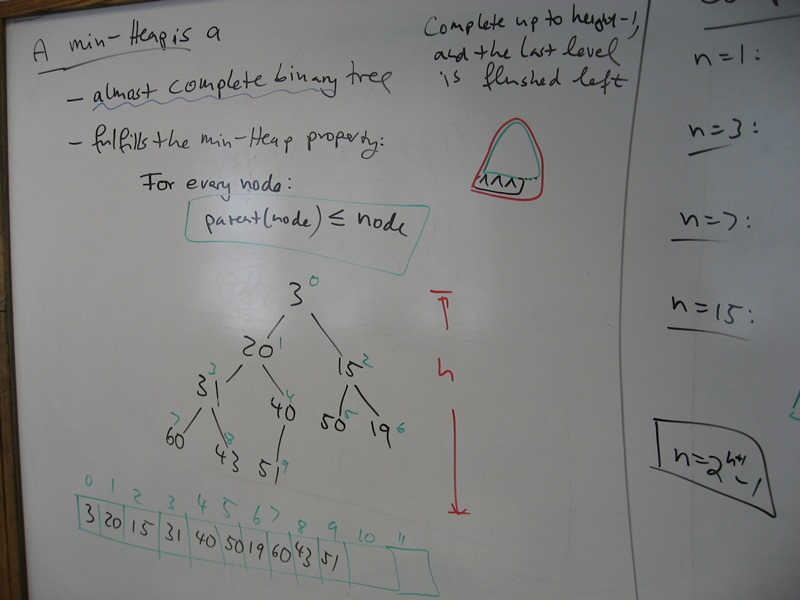 A min-Heap is a
- almost complete binary tree
- fulfills the min-Heap property:
For every node:
parent(node) ≤ node
Complete up to height-1,
and the last level
is flushed left
3 0
20 1 15 2
31 3 40 4 50 5 19 6
60 7 43 8 51 9
h
0 1 2 3 4 5 6 7 8 9 10 11
3 20 15 31 40 50 19 60 43 51
n=1:
n=3:
n=7:
n=15:
n=2^h+1 -1